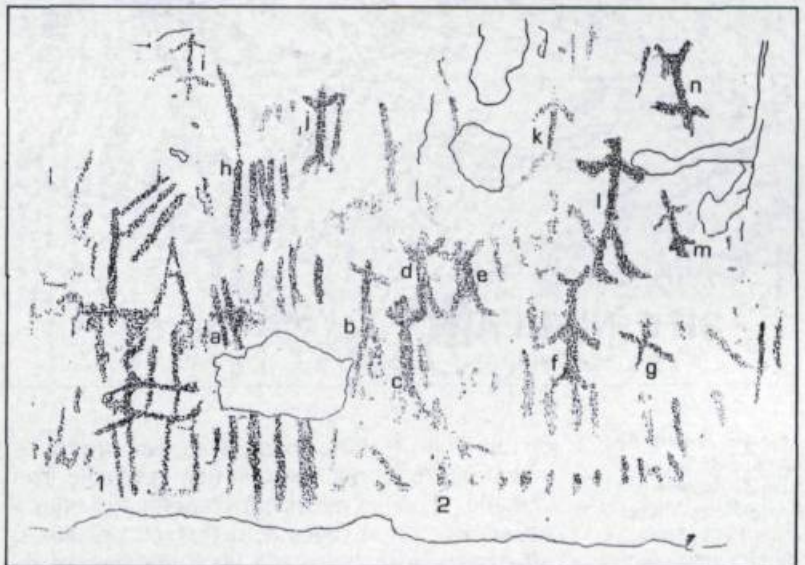 i
j
k
n
h
l
m
d
e
a
b
c
f
g
1
2